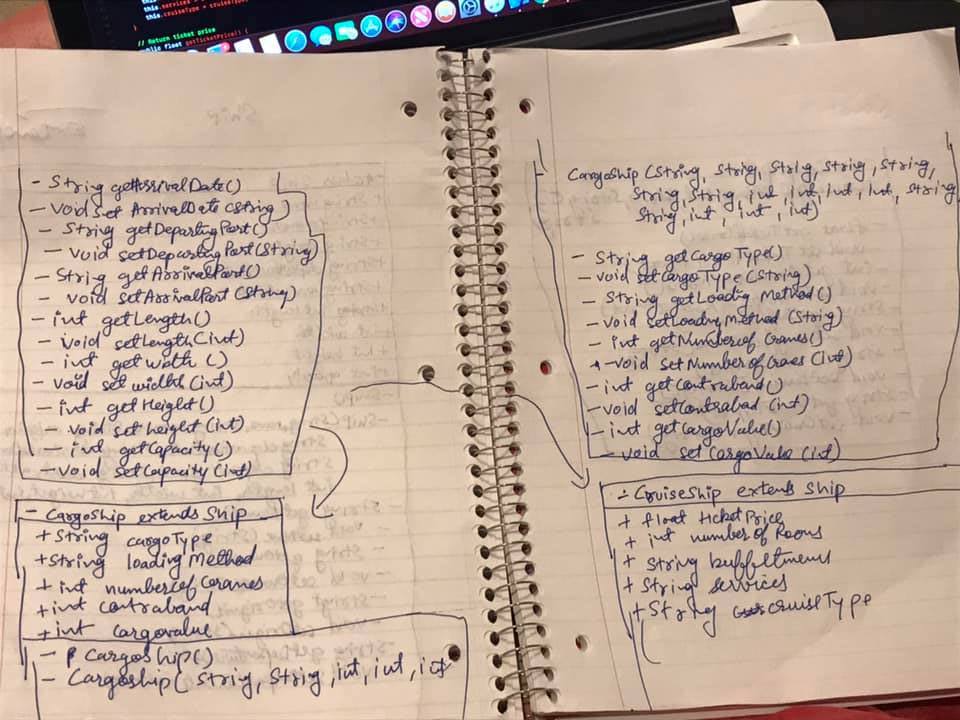 this.cruiseType = cruiseTyp
}
// Return ticket price
public float getTicketPrice() {
- String getArrivalDate()
- Void Set ArrivalDate (String)
- String getDepartingPort()
- Void setDepartingPort(String)
- String getArrivalPort()
- void setArrivalPort (String)
- int getLength()
- Void setLength (int)
- int getWidth ()
- void set width (int)
- int getHeight()
- void set height (int)
- int getCapacity()
- void setCapacity (int)
- CargoShip extends Ship
+ String cargoType
+ String loading Method
+ int numberof Cranes
+ int contraband
+ int cargovalue
- cargoship()
- Cargoship( String, String, int, int, int
- CargoShip (String, String, String, String, String,
String, String, int, int, int, int, String
String, int, int, int)
- String getCargo Type()
- void setCargo Type (String)
- String getLoading Method()
- void setLoading Method (String)
- int getNumberof Cranes()
- void setNumberof Cranes (int)
- int getContraband()
- void setContraband (int)
- int getCargoValue()
- void setCargoValue (int)
- CruiseShip extends Ship
+ float ticketPrice
+ int number of Rooms
+ String buffetmenus
+ String services
+ String cruiseType